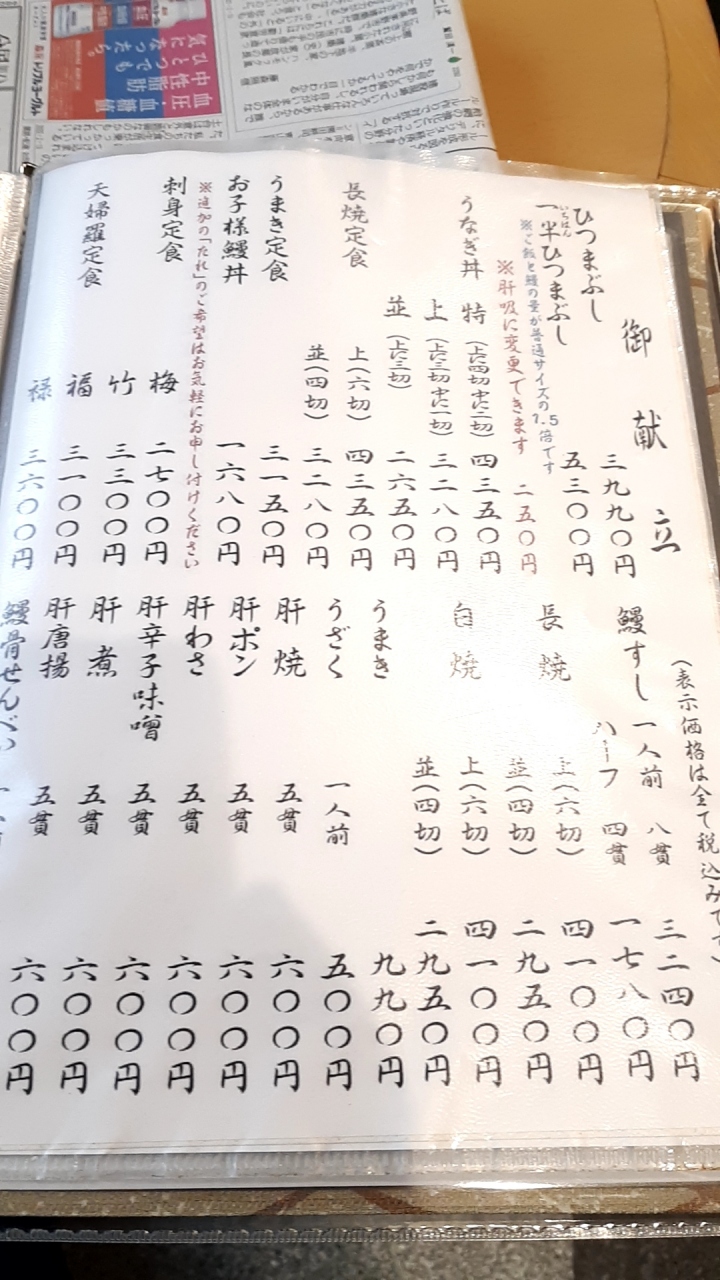 御献立
(表示価格は全て税込みです)
ひつまぶし 三九九〇円
一半ひつまぶし 五三〇〇円
いちはん
※ご飯と鰻の量が普通サイズの1.5倍です
※肝吸に変更できます 二五〇円
うなぎ丼 特(上四切中二切) 四三五〇円
上(上三切中一切) 三二八〇円
並(上に三切) 二六五〇円
長焼定食 上(六切) 四三五〇円
並(四切) 三二八〇円
うまき定食 三一五〇円
お子様鰻丼 一六八〇円
※追加の「たれ」のご希望はお気軽にお申し付けください
刺身定食 梅 二七〇〇円
竹 三三〇〇円
天婦羅定食 福 三一〇〇円
禄 三六〇〇円
鰻すし 一人前 八貫 三二四〇円
ハーフ 四貫 一七八〇円
長焼 上(六切) 四一〇〇円
並(四切) 二九五〇円
白焼 上(六切) 四一〇〇円
並(四切) 二九五〇円
うまき 九九〇円
うざく 一人前 五〇〇円
肝焼 五貫 六〇〇円
肝ポン 五貫 六〇〇円
肝わさ 五貫 六〇〇円
肝辛子味噌 五貫 六〇〇円
肝煮 五貫 六〇〇円
肝唐揚 五貫 六〇〇円
鰻骨せんべい
血圧・血糖値
中性脂肪
ひとつでも
気になったら。